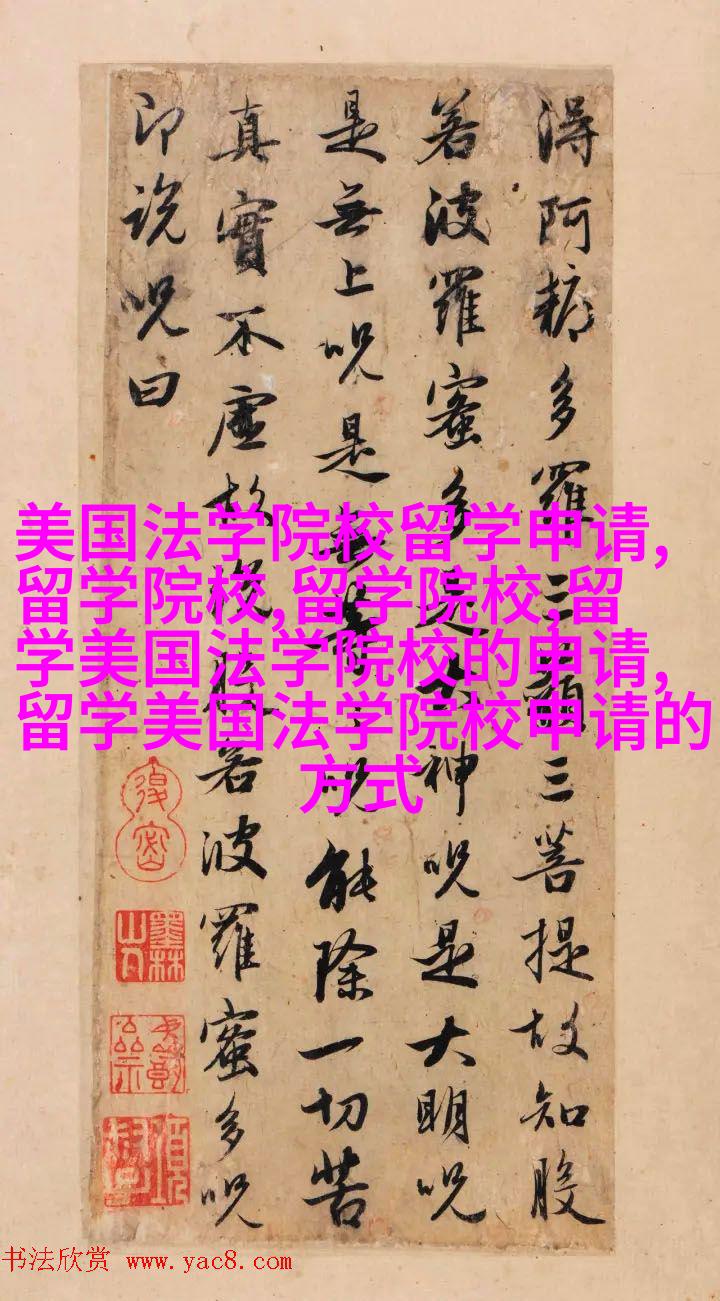 得阿耨多羅三藐三菩提故知般
若波羅蜜多是大神呪是大明呪
是無上呪是無等等呪能除一切苦
真實不虛故説般若波羅蜜多呪
即説呪曰
美国法学院校留学申请,
留学院校,留学院校,留
学美国法学院校的申请,
留学美国法学院校申请的
方式
墨林
书法欣赏 www.yac8.com